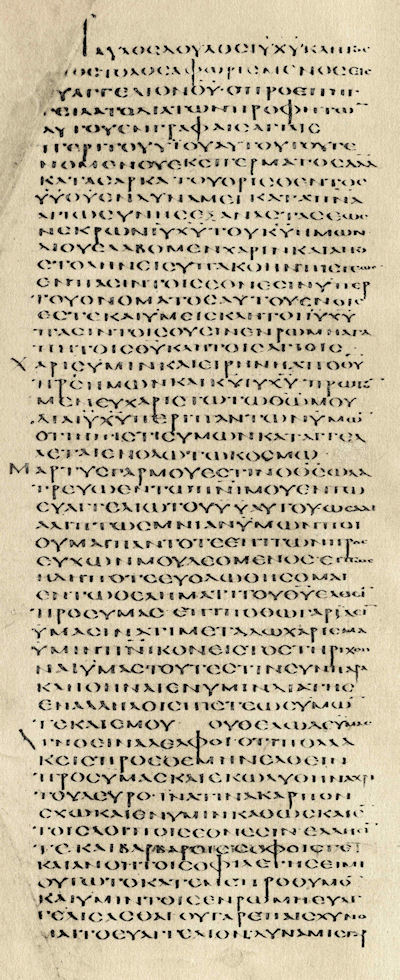 ΠΑΥΛΟϹΔΟΥΛΟϹΙΥ̅ΧΥ̅ΚΛΗΤΟϹ
ΑΠΟϹΤΟΛΟϹΑΦΩΡΙϹΜΕΝΟϹΕΙϹ
ΕΥΑΓΓΕΛΙΟΝΘΥ̅·ΟΠΡΟΕΠΗΓ
ΓΕΙΛΑΤΟΔΙΑΤΩΝΠΡΟΦΗΤΩ̅
ΑΥΤΟΥΕΝΓΡΑΦΑΙϹΑΓΙΑΙϹ
ΠΕΡΙΤΟΥΥΥ̅ΑΥΤΟΥΤΟΥΓΕ
ΝΟΜΕΝΟΥΕΚϹΠΕΡΜΑΤΟϹΔΑΔ
ΚΑΤΑϹΑΡΚΑΤΟΥΟΡΙϹΘΕΝΤΟϹ
ΥΥ̅ΘΥ̅ΕΝΔΥΝΑΜΕΙΚΑΤΑΠΝΑ
ΑΓΙΩϹΥΝΗϹΕΞΑΝΑϹΤΑϹΕΩϹ
ΝΕΚΡΩΝΙΥ̅ΧΥ̅ΤΟΥΚΥ̅ΗΜΩΝ
ΔΙΟΥΕΛΑΒΟΜΕΝΧΑΡΙΝΚΑΙΑΠΟ
ϹΤΟΛΗΝΕΙϹΥΠΑΚΟΗΝΠΙϹΤΕΩϹ
ΕΝΠΑϹΙΝΤΟΙϹΕΘΝΕϹΙΝΥΠΕΡ
ΤΟΥΟΝΟΜΑΤΟϹΑΥΤΟΥΕΝΟΙϹ
ΕϹΤΕΚΑΙΥΜΕΙϹΚΛΗΤΟΙΙΥ̅ΧΥ̅
ΠΑϹΙΝΤΟΙϹΟΥϹΙΝΕΝΡΩΜΗΑΓΑ
ΠΗΤΟΙϹΘΥ̅ΚΛΗΤΟΙϹΑΓΙΟΙϹ
ΧΑΡΙϹΥΜΙΝΚΑΙΕΙΡΗΝΗΑΠΟΘΥ̅
ΠΡ̅ϹΗΜΩΝΚΑΙΚΥ̅ΙΥ̅ΧΥ̅ΠΡΩΤΟ̅
ΜΕΝΕΥΧΑΡΙϹΤΩΤΩΘΩ̅ΜΟΥ
ΔΙΑΙΥ̅ΧΥ̅ΠΕΡΙΠΑΝΤΩΝΥΜΩ̅
ΟΤΙΗΠΙϹΤΙϹΥΜΩΝΚΑΤΑΓΓΕΛ
ΛΕΤΑΙΕΝΟΛΩΤΩΚΟϹΜΩ
ΜΑΡΤΥϹΓΑΡΜΟΥΕϹΤΙΝΟΘϹ̅ΩΛΑ
ΤΡΕΥΩΕΝΤΩΠΝΙ̅ΜΟΥΕΝΤΩ
ΕΥΑΓΓΕΛΙΩΤΟΥΥΥ̅ΑΥΤΟΥ·ΩϹΑΔΙ
ΑΛΗΠΤΩϹΜΝΙΑΝΥΜΩΝΠΟΙ
ΟΥΜΑΙΠΑΝΤΟΤΕΕΠΙΤΩΝΠΡΟϹ
ΕΥΧΩΝΜΟΥΔΕΟΜΕΝΟϹ·ΕΙΠΩϹ
ΗΔΗΠΟΤΕΕΥΟΔΩΘΗϹΟΜΑΙ
ΕΝΤΩΘΕΛΗΜΑΤΙΤΟΥΘΥ̅ΕΛΘΕΙ̅
ΠΡΟϹΥΜΑϹ·ΕΠΙΠΟΘΩΓΑΡΙΔΕΙ̅
ΥΜΑϹΙΝΑΤΙΜΕΤΑΔΩΧΑΡΙϹΜΑ
ΥΜΙΝΠΝ̅ΙΚΟΝΕΙϹΤΟϹΤΗΡΙΧΘΗ
ΝΑΙΥΜΑϹΤΟΥΤΕϹΤΙΝϹΥΝΠΑΡΑ
ΚΛΗΘΗΝΑΙΕΝΥΜΙΝΔΙΑΤΗϹ
ΕΝΑΛΛΗΛΟΙϹΠΙϹΤΕΩϹΥΜΩ̅
ΤΕΚΑΙΕΜΟΥ ΟΥΘΕΛΩΔΕΥΜΑϹ
ΑΓΝΟΕΙΝΑΔΕΛΦΟΙ·ΟΤΙΠΟΛΛΑ
ΚΕΙϹΠΡΟΕΘΕΜΗΝΕΛΘΕΙΝ
ΠΡΟϹΥΜΑϹΚΑΙΕΚΩΛΥΘΗΝΑΧΡΙ
ΤΟΥΔΕΥΡΟ·ΙΝΑΤΙΝΑΚΑΡΠΟΝ
ϹΧΩΚΑΙΕΝΥΜΙΝΚΑΘΩϹΚΑΙΕ̅
ΤΟΙϹΛΟΙΠΟΙϹΕΘΝΕϹΙΝ·ΕΛΛΗϹΙ̅
ΤΕΚΑΙΒΑΡΒΑΡΟΙϹϹΟΦΟΙϹΤΕ
ΚΑΙΑΝΟΗΤΟΙϹΟΦΙΛΕΤΗϹΕΙΜΙ
ΟΥΤΩΤΟΚΑΤΕΜΕΠΡΟΘΥΜΟ̅
ΚΑΙΥΜΙΝΤΟΙϹΕΝΡΩΜΗΕΥΑΓ
ΓΕΛΙϹΑϹΘΑΙΟΥΓΑΡΕΠΑΙϹΧΥΝΟ
ΜΑΙΤΟΕΥΑΓΓΕΛΙΟΝ·ΔΥΝΑΜΙϹΓΑΡ